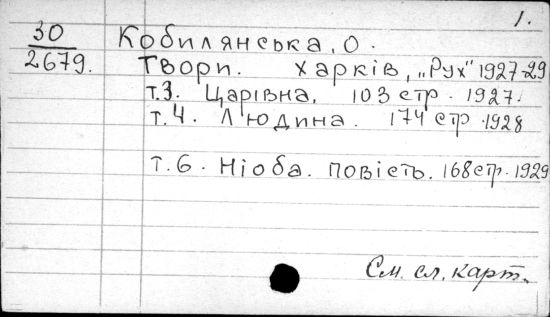 1.
30
2679.
Кобилянська, О.
Твори. Харків, „Рух" 1927-29
т.3. Царівна. 103 стр. 1927.
т.4. Людина. 174 стр. 1928
т.6. Ніоба. повість. 168 стр. 1929
См. сл. карт.